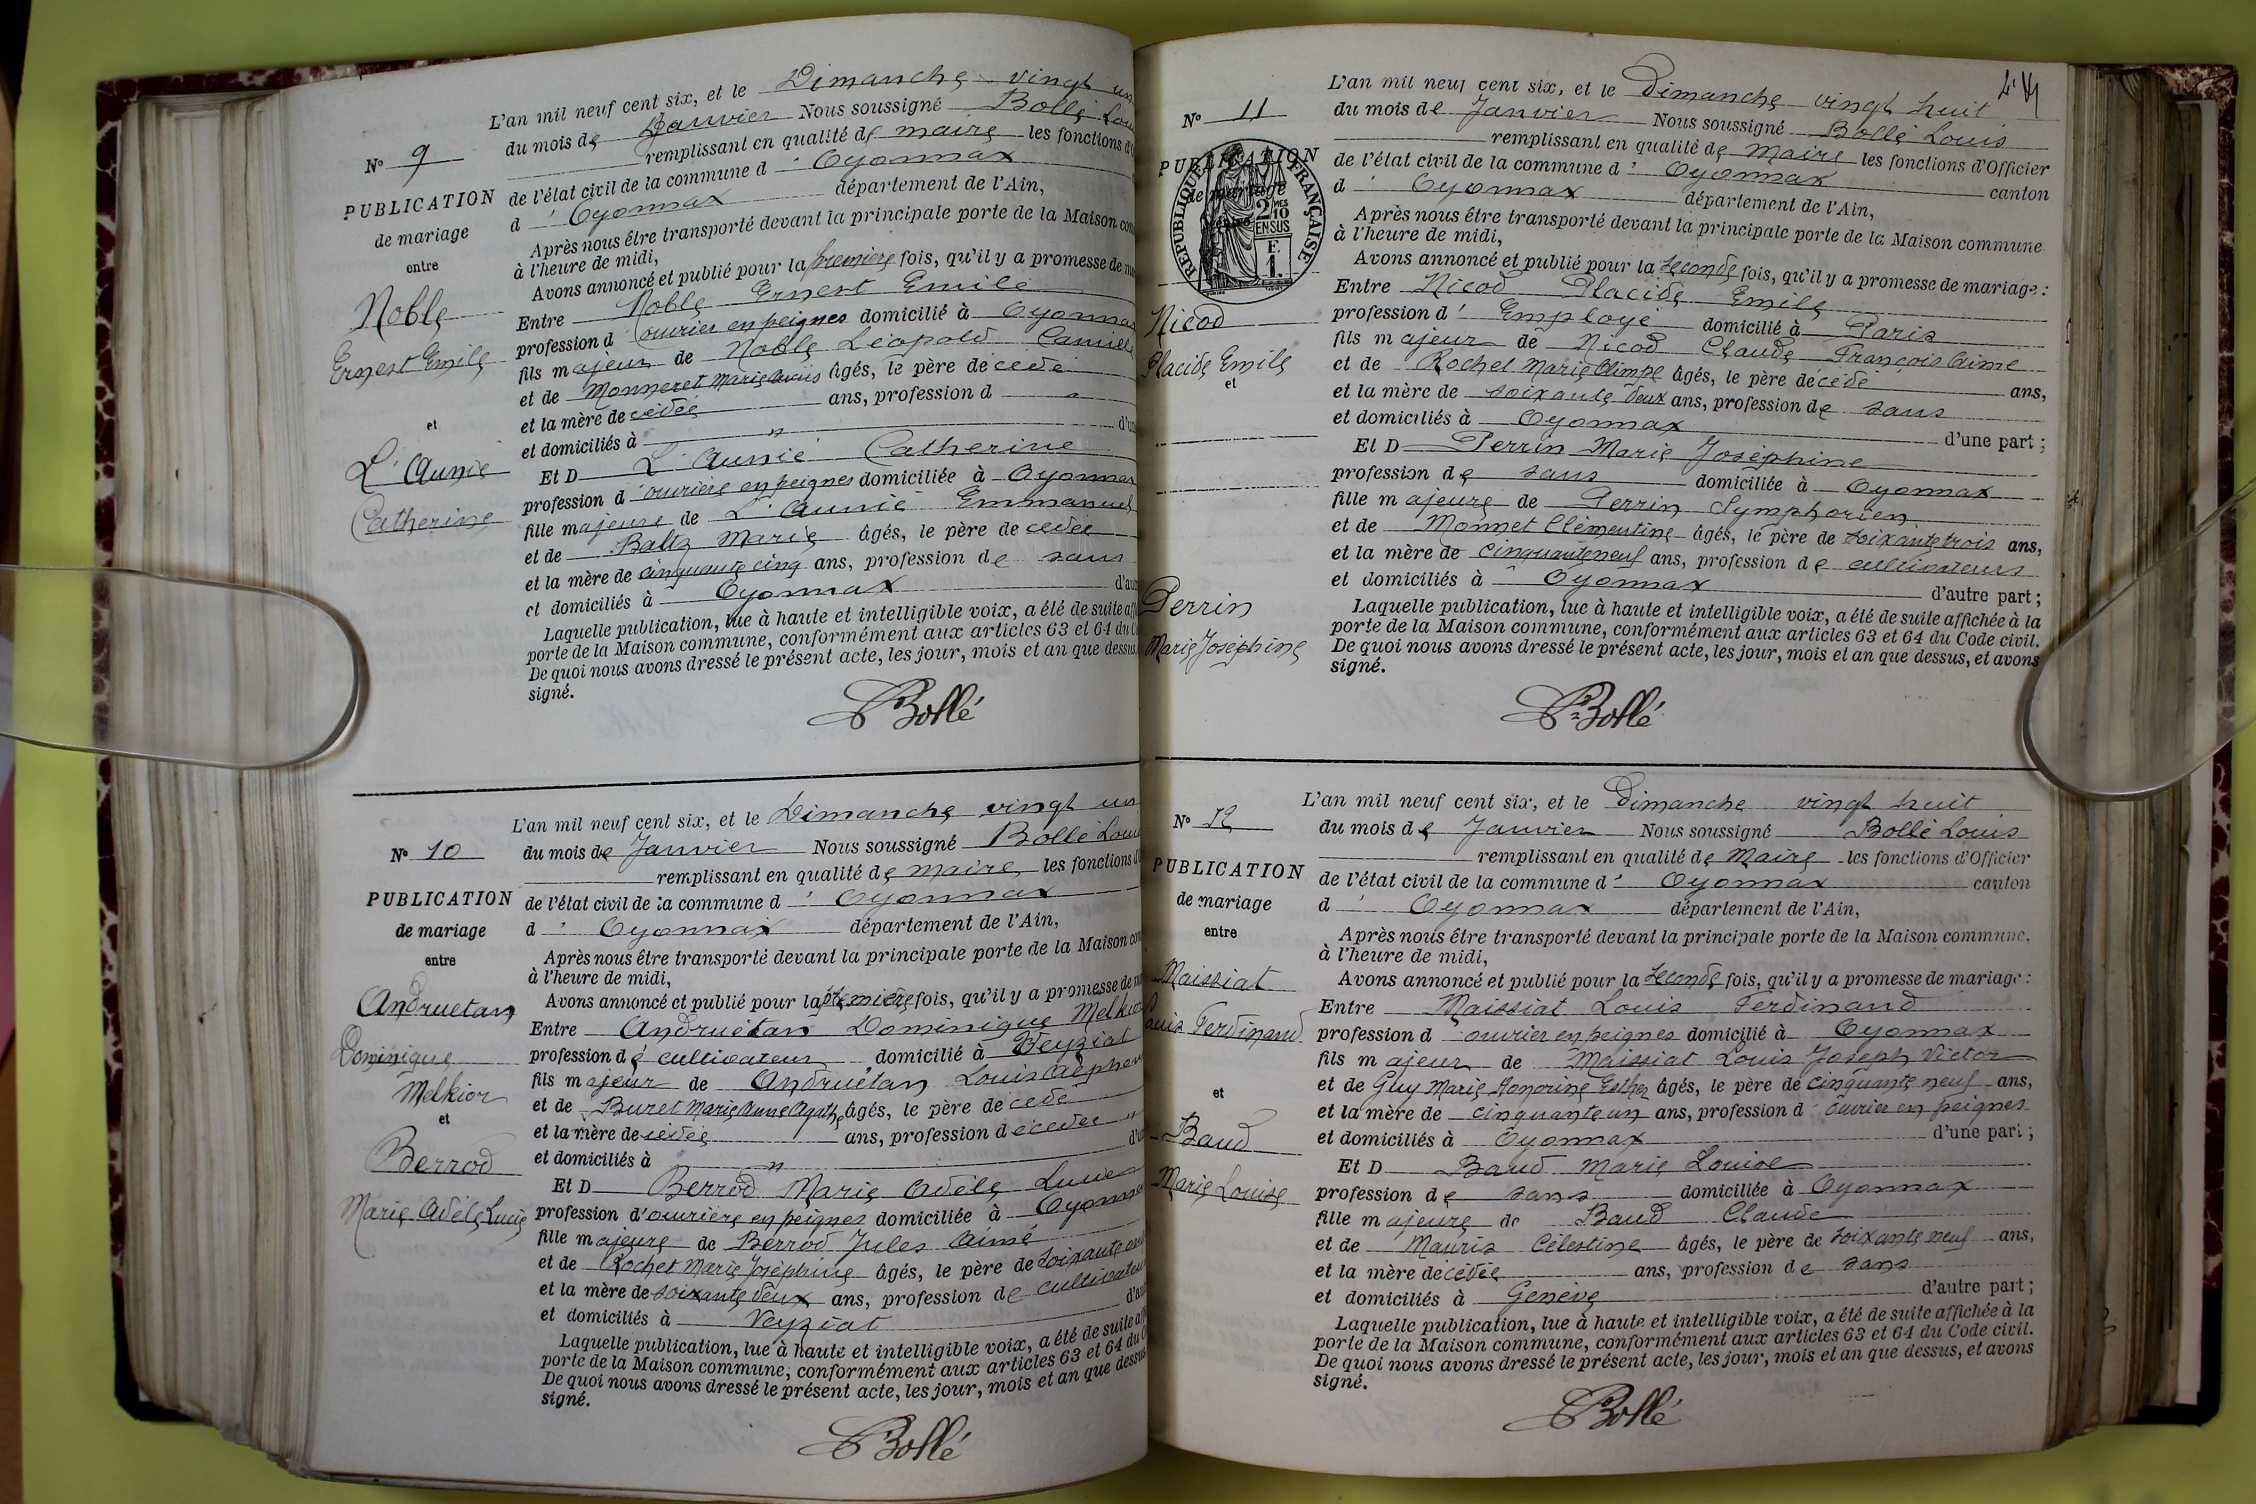 N° 9
PUBLICATION
de mariage
entre
Noble
Ernest Emile
et
L'Aunié
Catherine
L'an mil neuf cent six, et le Dimanche vingt un
du mois de Janvier Nous soussigné Bollé
remplissant en qualité de maire les fonctions
de l'état civil de la commune d'Oyonnax
d'Oyonnax département de l'Ain,
Après nous être transporté devant la principale porte de la Maison
à l'heure de midi,
Avons annoncé et publié pour la première fois, qu'il y a promesse de
Entre Noble Ernest Emile
profession d'ouvrier en peignes domicilié à Oyonnax
fils majeur de Noble Léopold Camille
et de Monneret Marie âgés, le père décédé
et la mère décédée ans, profession d "
et domiciliés à "
Et D L'Aunié Catherine
profession d'ouvrière en peignes domiciliée à Oyonnax
fille majeure de L'Aunié Emmanuel
et de Baltz Marie âgés, le père de cedée
et la mère de cinquante cinq ans, profession de sans
et domiciliés à Oyonnax
Laquelle publication, lue à haute et intelligible voix, a été de suite
porte de la Maison commune, conformément aux articles 63 et 64 du
De quoi nous avons dressé le présent acte, les jour, mois et an que dessus,
signé.
Bollé
N° 10
PUBLICATION
de mariage
entre
Andruétan
Dominique
Melkior
et
Berrod
Marie Adèle Lucie
L'an mil neuf cent six, et le Dimanche vingt un
du mois de Janvier Nous soussigné Bollé Louis
remplissant en qualité de maire les fonctions
de l'état civil de la commune d'Oyonnax
d'Oyonnax département de l'Ain,
Après nous être transporté devant la principale porte de la Maison
à l'heure de midi,
Avons annoncé et publié pour la première fois, qu'il y a promesse de
Entre Andruétan Dominique Melkior
profession de cultivateur domicilié à Veyziat
fils majeur de Andruétan Louis
et de Buret Marie Anne Agathe âgés, le père décédé
et la mère décédée ans, profession décédée "
et domiciliés à "
Et D Berrod Marie Adèle Lucie
profession d'ouvrière en peignes domiciliée à Oyonnax
fille majeure de Berrod Jules Aimé
et de Rochet Marie Joséphine âgés, le père de soixante
et la mère de soixante deux ans, profession de cultivateurs
et domiciliés à Veyziat
Laquelle publication, lue à haute et intelligible voix, a été de suite
porte de la Maison commune, conformément aux articles 63 et 64 du
De quoi nous avons dressé le présent acte, les jour, mois et an que dessus
signé.
Bollé
N° 11
PUBLICATION
de mariage
entre
RÉPUBLIQUE FRANÇAISE
2 MES
10
EN SUS
F.
1.
Nicod
Placide Emile
et
Perrin
Marie Joséphine
L'an mil neuf cent six, et le Dimanche vingt huit
du mois de Janvier Nous soussigné Bollé Louis
remplissant en qualité de Maire les fonctions d'Officier
de l'état civil de la commune d'Oyonnax canton
d'Oyonnax département de l'Ain,
Après nous être transporté devant la principale porte de la Maison commune
à l'heure de midi,
Avons annoncé et publié pour la seconde fois, qu'il y a promesse de mariage :
Entre Nicod Placide Emile
profession d'Employé domicilié à Paris
fils majeur de Nicod Claude François Aimé
et de Rochet Marie Olimpe âgés, le père décédé ans,
et la mère de soixante deux ans, profession de sans
et domiciliés à Oyonnax d'une part ;
Et D Perrin Marie Joséphine
profession de sans domiciliée à Oyonnax
fille majeure de Perrin Symphorien
et de Monnet Clémentine âgés, le père de soixante trois ans,
et la mère de cinquante neuf ans, profession de cultivateurs
et domiciliés à Oyonnax d'autre part ;
Laquelle publication, lue à haute et intelligible voix, a été de suite affichée à la
porte de la Maison commune, conformément aux articles 63 et 64 du Code civil.
De quoi nous avons dressé le présent acte, les jour, mois et an que dessus, et avons
signé.
Bollé
N° 12
PUBLICATION
de mariage
entre
Maissiat
Louis Ferdinand
et
Baud
Marie Louise
L'an mil neuf cent six, et le Dimanche vingt huit
du mois de Janvier Nous soussigné Bollé Louis
remplissant en qualité de Maire les fonctions d'Officier
de l'état civil de la commune d'Oyonnax canton
d'Oyonnax département de l'Ain,
Après nous être transporté devant la principale porte de la Maison commune.
à l'heure de midi,
Avons annoncé et publié pour la seconde fois, qu'il y a promesse de mariage :
Entre Maissiat Louis Ferdinand
profession d'ouvrier en peignes domicilié à Oyonnax
fils majeur de Maissiat Louis Joseph Victor
et de Guy Marie Honorine Esther âgés, le père de cinquante neuf ans,
et la mère de cinquante un ans, profession d'ouvrier en peignes
et domiciliés à Oyonnax d'une part ;
Et D Baud Marie Louise
profession de sans domiciliée à Oyonnax
fille majeure de Baud Claude
et de Mauris Célestine âgés, le père de soixante neuf ans,
et la mère décédée ans, profession de sans
et domiciliés à Genève d'autre part ;
Laquelle publication, lue à haute et intelligible voix, a été de suite affichée à la
porte de la Maison commune, conformément aux articles 63 et 64 du Code civil.
De quoi nous avons dressé le présent acte, les jour, mois et an que dessus, et avons
signé.
Bollé